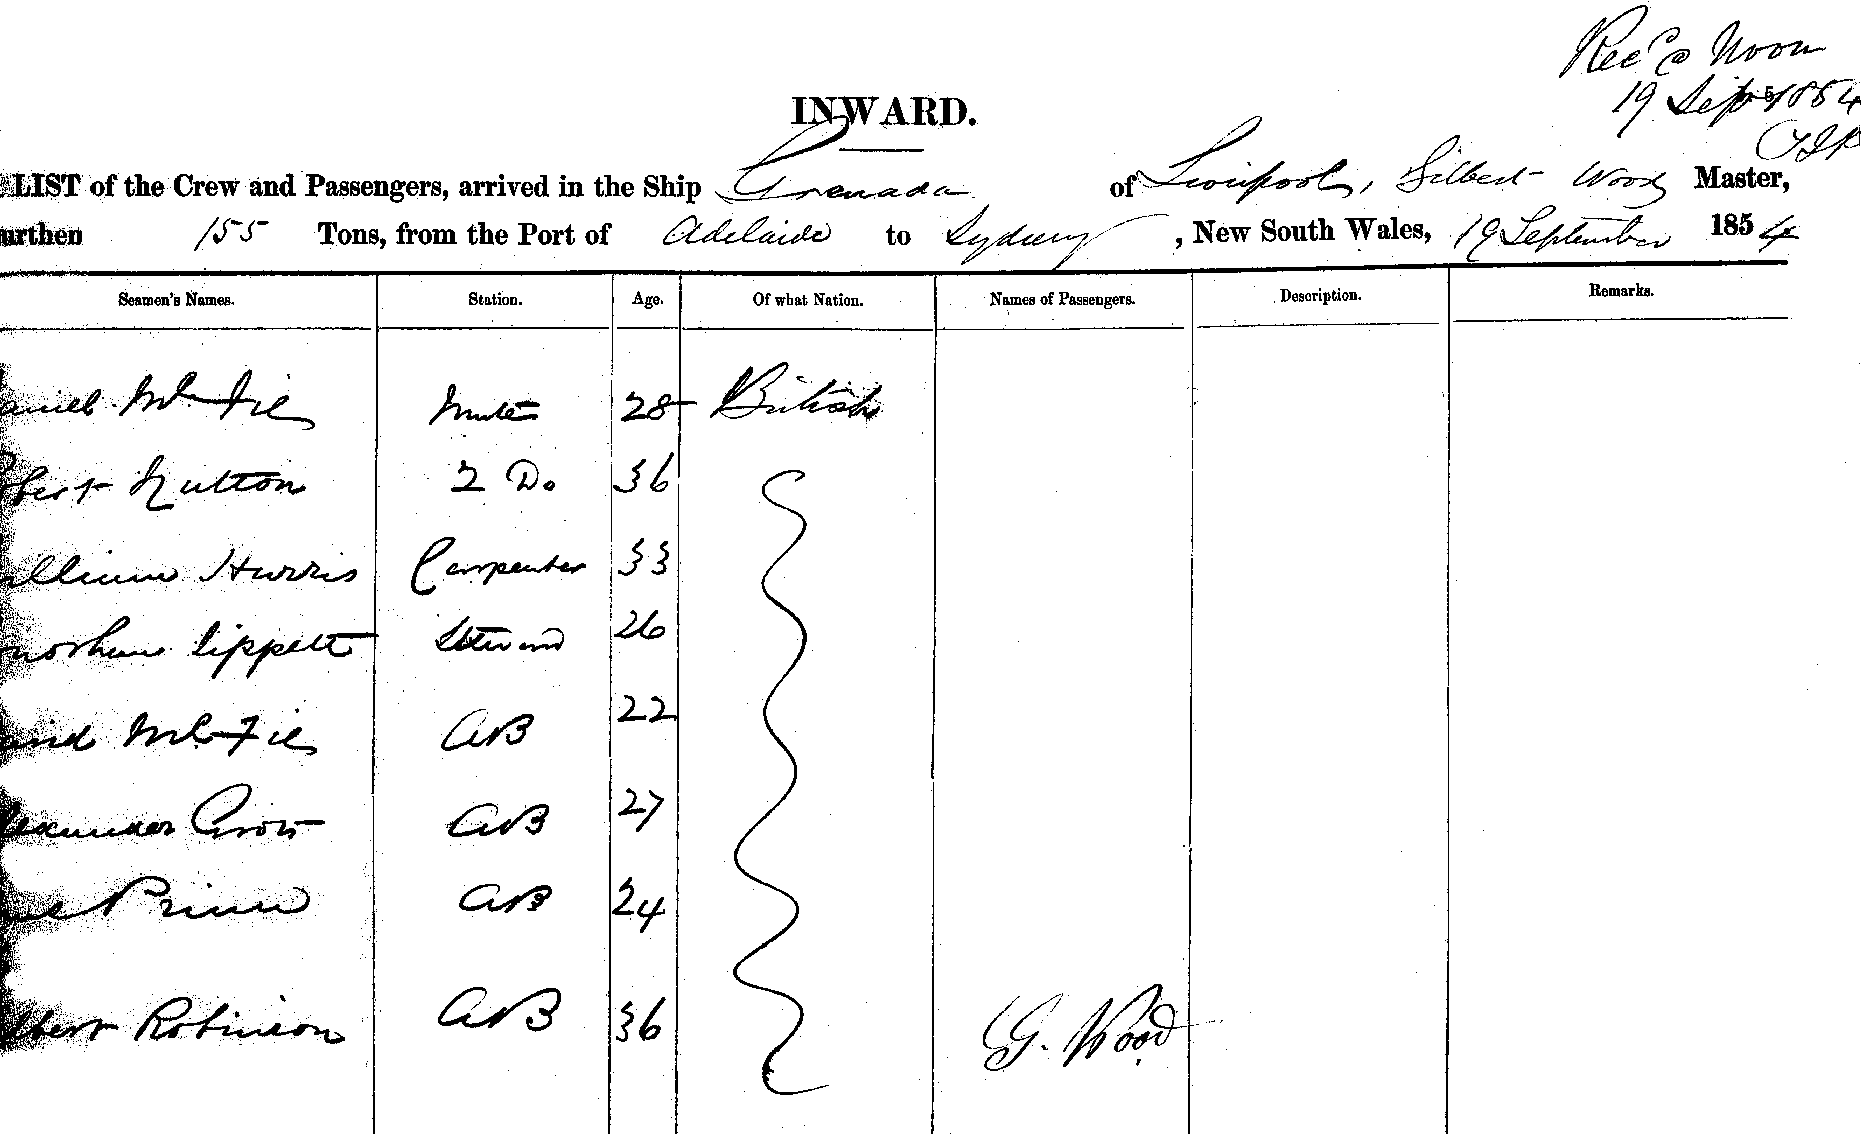 Recd @ Noon
19 Sept 1854
INWARD.
LIST of the Crew and Passengers, arrived in the Ship Grenada of Liverpool, Gilbert Wood Master,
urthen 155 Tons, from the Port of Adelaide to Sydney, New South Wales, 19 September 1854
Seamen's Names. Station. Age. Of what Nation. Names of Passengers. Description. Remarks.
aniel McFie Mate 28 British
bert Hutton 2 Do 36
illiam Harris Carpenter 33
Lippett Steward 26
avid McFie AB 22
lexander AB 27
AB 24
bert Robinson AB 36
G. Wood